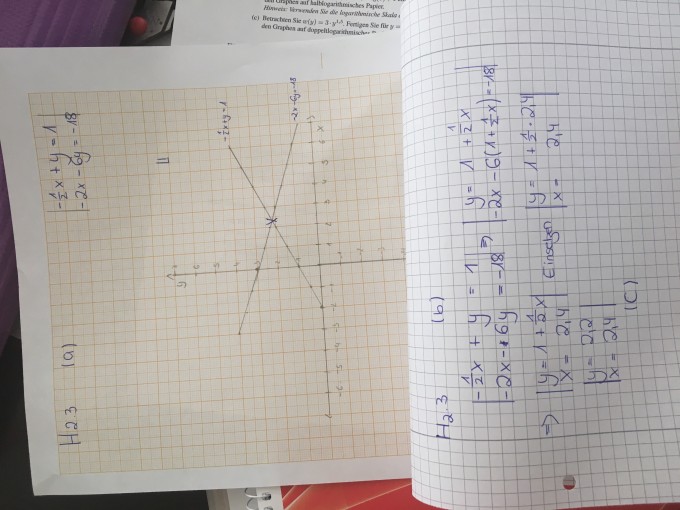 den Graphen auf halblogarithmisches Papier.
Hinweis: Verwenden Sie die logarithmische Skala
(c) Betrachten Sie
Fertigen Sie für
den Graphen auf doppeltlogarithmisches
H2.3 (a)
|-1/2x + y = 1|
|-2x - 6y = -18|
-1/2x+y=1
-2x-6y=-18
y
x
H2.3 (b)
|-1/2x + y = 1| => |y = 1 + 1/2x|
|-2x - 6y = -18| |-2x - 6(1+1/2x) = -18|
=> |y = 1 + 1/2x| Einsetzen |y = 1 + 1/2 · 2,4|
|x = 2,4| |x = 2,4|
|y = 2,2|
|x = 2,4|
(C)